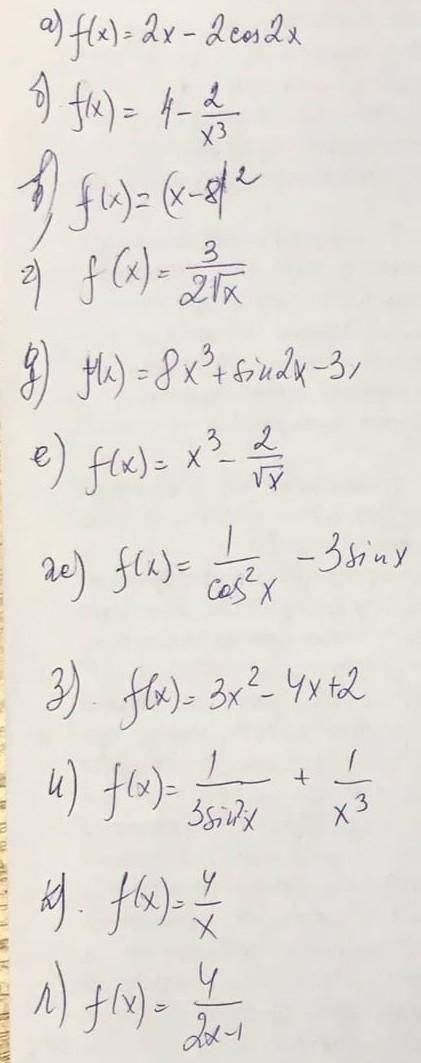 а) f(x) = 2x - 2cos2x
б) f(x) = 4 - 2/x³
в) f(x) = (x-8)²
г) f(x) = 3/(2√x)
д) f(x) = 8x³ + sin2x - 3
е) f(x) = x³ - 2/√x
ж) f(x) = 1/cos²x - 3sinx
з). f(x) = 3x² - 4x + 2
и) f(x) = 1/(3sin²x) + 1/x³
к). f(x) = 4/x
л) f(x) = 4/(2x-1)